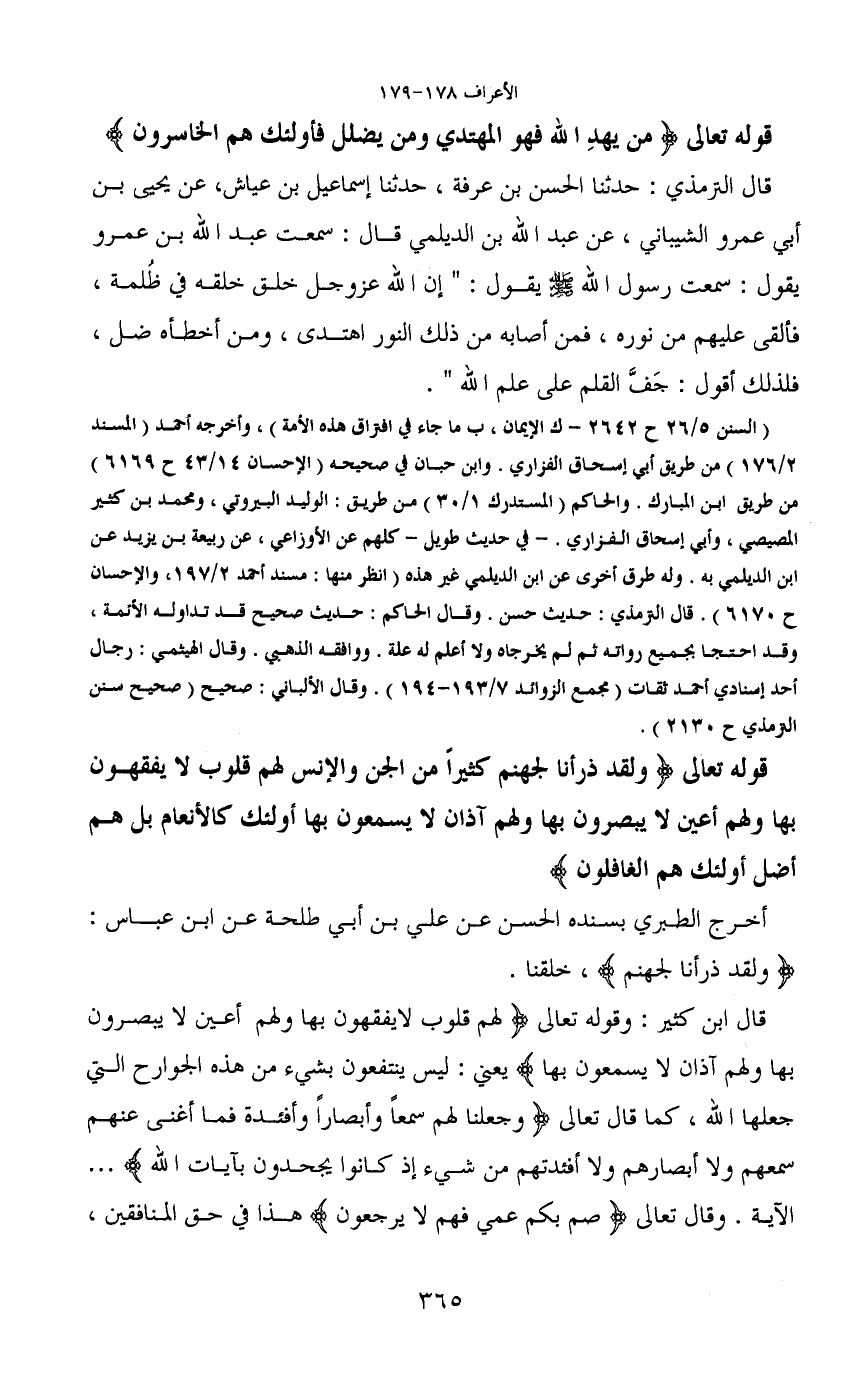 الأعراف ١٧٨-١٧٩
قوله تعالى ﴿ من يهدِ الله فهو المهتدي ومن يضلل فأولئك هم الخاسرون ﴾
قال الترمذي : حدثنا الحسن بن عرفة ، حدثنا إسماعيل بن عياش، عن يحيى بن
أبي عمرو الشيباني ، عن عبد الله بن الديلمي قال : سمعت عبد الله بن عمرو
يقول : سمعت رسول الله ﷺ يقول : " إن الله عزوجل خلق خلقه في ظُلمة ،
فألقى عليهم من نوره ، فمن أصابه من ذلك النور اهتدى ، ومن أخطأه ضل ،
فلذلك أقول : جَفَّ القلم على علم الله " .
( السنن ٢٦/٥ ح ٢٦٤٢ - ك الإيمان ، ب ما جاء في افتراق هذه الأمة ) ، وأخرجه أحمد ( المسند
١٧٦/٢ ) من طريق أبي إسحاق الفزاري . وابن حبان في صحيحه ( الإحسان ٤٣/١٤ ح ٦١٦٩ )
من طريق ابن المبارك . والحاكم ( المستدرك ٣٠/١ ) من طريق : الوليد البيروتي ، ومحمد بن كثير
المصيصي ، وأبي إسحاق الفزاري . - في حديث طويل - كلهم عن الأوزاعي ، عن ربيعة بن يزيد عن
ابن الديلمي به . وله طرق أخرى عن ابن الديلمي غير هذه ( انظر منها : مسند أحمد ١٩٧/٢، والإحسان
ح ٦١٧٠ ) . قال الترمذي : حديث حسن . وقال الحاكم : حديث صحيح قد تداوله الأئمة ،
وقد احتجا بجميع رواته ثم لم يخرجاه ولا أعلم له علة . ووافقه الذهبي . وقال الهيثمي : رجال
أحد إسنادي أحمد ثقات ( مجمع الزوائد ١٩٣/٧-١٩٤ ) . وقال الألباني : صحيح ( صحيح سنن
الترمذي ح ٢١٣٠ ) .
قوله تعالى ﴿ ولقد ذرأنا لجهنم كثيراً من الجن والإنس لهم قلوب لا يفقهون
بها ولهم أعين لا يبصرون بها ولهم آذان لا يسمعون بها أولئك كالأنعام بل هم
أضل أولئك هم الغافلون ﴾
أخرج الطبري بسنده الحسن عن علي بن أبي طلحة عن ابن عباس :
﴿ ولقد ذرأنا لجهنم ﴾ ، خلقنا .
قال ابن كثير : وقوله تعالى ﴿ لهم قلوب لايفقهون بها ولهم أعين لا يبصرون
بها ولهم آذان لا يسمعون بها ﴾ يعني : ليس ينتفعون بشيء من هذه الجوارح التي
جعلها الله ، كما قال تعالى ﴿ وجعلنا لهم سمعاً وأبصاراً وأفئدة فما أغنى عنهم
سمعهم ولا أبصارهم ولا أفئدتهم من شيء إذ كانوا يجحدون بآيات الله ﴾ ...
الآية . وقال تعالى ﴿ صم بكم عمي فهم لا يرجعون ﴾ هذا في حق المنافقين ،
٣٦٥